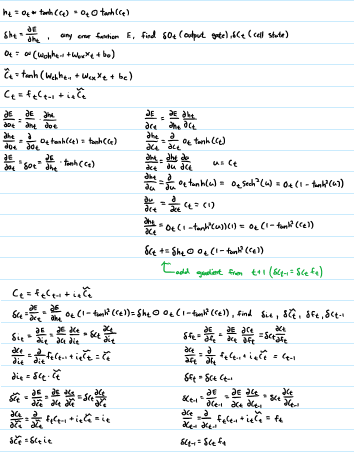 hₜ = oₜ ⊙ tanh(cₜ) = oₜ ⊙ tanh(cₜ)
δhₜ = ∂E/∂hₜ, any error function E, find δOₜ (output gate), δCₜ (cell state)
Oₜ = σ(Wₒₕhₜ₋₁ + Wₒₓxₜ + bₒ)
c̃ₜ = tanh(W꜀ₕhₜ₋₁ + W꜀ₓxₜ + b꜀)
Cₜ = fₜCₜ₋₁ + iₜc̃ₜ
∂E/∂oₜ = ∂E/∂hₜ ∂hₜ/∂oₜ
∂hₜ/∂oₜ = ∂/∂oₜ oₜ tanh(cₜ) = tanh(cₜ)
∂E/∂oₜ = δoₜ = ∂E/∂hₜ · tanh(cₜ)
∂E/∂cₜ = ∂E/∂hₜ ∂hₜ/∂cₜ
∂hₜ/∂cₜ = ∂/∂cₜ oₜ tanh(cₜ)
∂hₜ/∂cₜ = ∂hₜ/∂u ∂u/∂cₜ u = cₜ
∂hₜ/∂u = ∂/∂u oₜ tanh(u) = oₜ sech²(u) = oₜ(1 - tanh²(u))
∂u/∂cₜ = ∂/∂cₜ cₜ = (1)
∂hₜ/∂cₜ = oₜ(1 - tanh²(u))(1) = oₜ(1 - tanh²(cₜ))
δcₜ += δhₜ ⊙ oₜ(1 - tanh²(cₜ))
add gradient from t+1 (δcₜ₋₁ = δcₜ fₜ)
Cₜ = fₜCₜ₋₁ + iₜc̃ₜ
δcₜ = ∂E/∂cₜ = ∂E/∂hₜ oₜ(1 - tanh²(cₜ)) = δhₜ ⊙ oₜ(1 - tanh²(cₜ)), find δiₜ, δc̃ₜ, δfₜ, δcₜ₋₁
δiₜ = ∂E/∂iₜ = ∂E/∂cₜ ∂cₜ/∂iₜ = δcₜ ∂cₜ/∂iₜ
∂cₜ/∂iₜ = ∂/∂iₜ fₜcₜ₋₁ + iₜc̃ₜ = c̃ₜ
∂iₜ = δcₜ · c̃ₜ
δfₜ = ∂E/∂fₜ = ∂E/∂cₜ ∂cₜ/∂fₜ = δcₜ ∂cₜ/∂fₜ
∂cₜ/∂fₜ = ∂/∂fₜ fₜcₜ₋₁ + iₜc̃ₜ = cₜ₋₁
δfₜ = δcₜ cₜ₋₁
δc̃ₜ = ∂E/∂c̃ₜ = ∂E/∂cₜ ∂cₜ/∂c̃ₜ = δcₜ ∂cₜ/∂c̃ₜ
∂cₜ/∂c̃ₜ = ∂/∂c̃ₜ fₜcₜ₋₁ + iₜc̃ₜ = iₜ
δc̃ₜ = δcₜ iₜ
δcₜ₋₁ = ∂E/∂cₜ₋₁ = ∂E/∂cₜ ∂cₜ/∂cₜ₋₁ = δcₜ ∂cₜ/∂cₜ₋₁
∂cₜ/∂cₜ₋₁ = ∂/∂cₜ₋₁ fₜcₜ₋₁ + iₜc̃ₜ = fₜ
δcₜ₋₁ = δcₜ fₜ